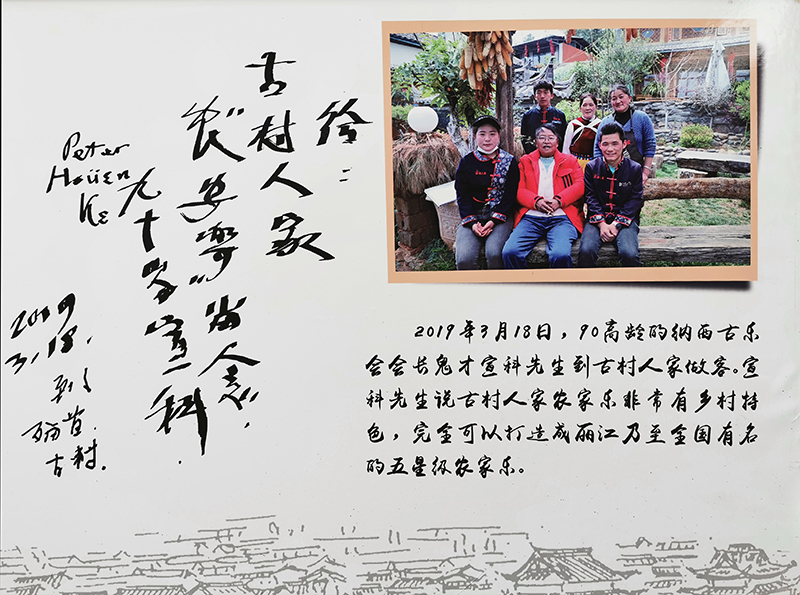 古村人家
九十岁宣科
Peter
Hsüen
Ke
2019
3.18.
古村.
2019年3月18日，90高龄的纳西古乐
会会长鬼才宣科先生到古村人家做客。宣
科先生说古村人家农家乐非常有乡村特
色，完全可以打造成丽江乃至全国有名
的五星级农家乐。